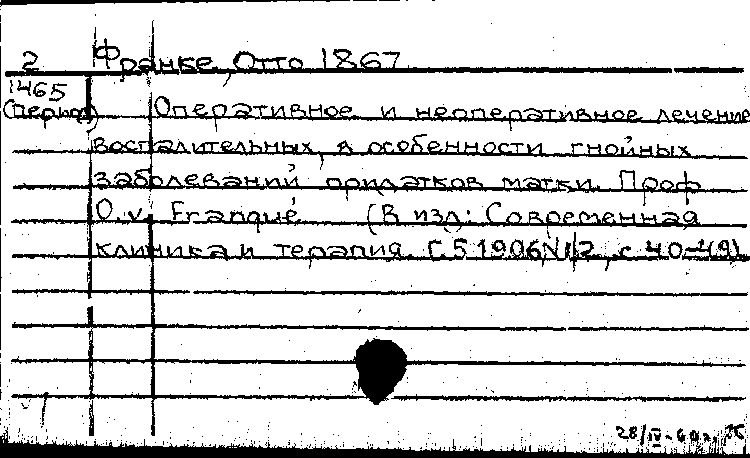 2 Франке, Отто 1867
1465
(период) Оперативное и неоперативное лечение
воспалительных, в особенности гнойных
заболеваний придатков матки. Проф
O. v. Franqué (В изд: Современная
клиника и терапия. С.5 1906 N1/2, с 40-49)
28/IV-60г.